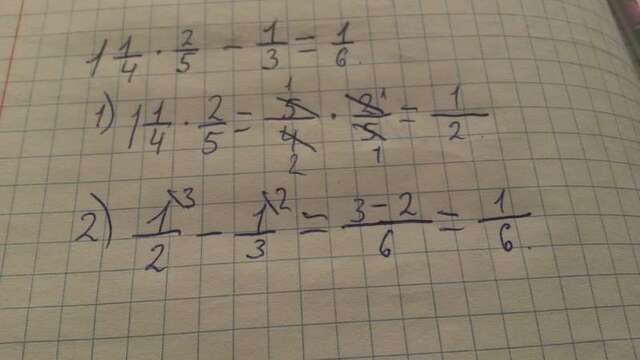 1 1/4 · 2/5 - 1/3 = 1/6.
1) 1 1/4 · 2/5 = 5/4 · 2/5 = 1/2
2) 1/2 - 1/3 = 3-2/6 = 1/6.